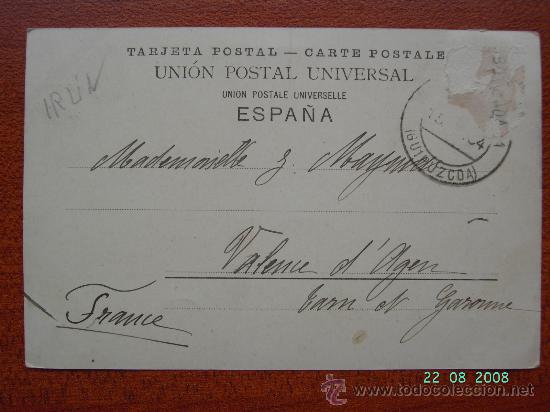 TARJETA POSTAL — CARTE POSTALE
UNIÓN POSTAL UNIVERSAL
UNION POSTALE UNIVERSELLE
ESPAÑA
IRÚN
(GUIPUZCOA)
Mademoiselle
Valence d'Agen
Tarn et Garonne
France
22 08 2008
www.todocoleccion.net